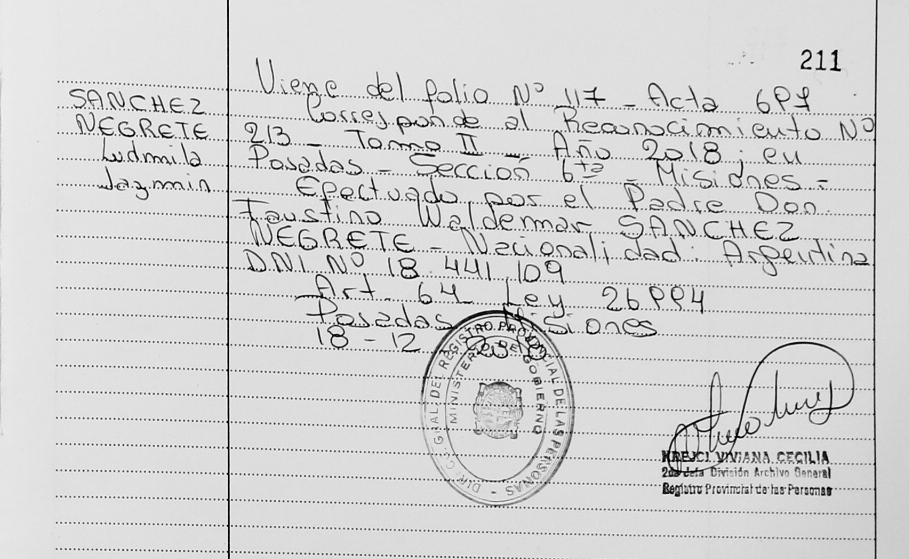 211
SANCHEZ
NEGRETE
Ludmila
Jazmin
Viene del folio Nº 117 - Acta 6P1
Corresponde al Reconocimiento Nº
213 - Tomo II - Año 2018; en
Posadas - Sección 6ta - Misiones -
Efectuado por el Padre Don.
Faustino Waldemar SANCHEZ
NEGRETE - Nacionalidad: Argentina
DNI Nº 18 441 109
Art. 64 Ley 26PP4
Posadas Misiones
18 - 12
DIR. GRAL. DEL REGISTRO PROVINCIAL DE LAS PERSONAS
MINISTERIO DE GOBIERNO
KREJCI VIVIANA CECILIA
2da Jefa División Archivo General
Registro Provincial de las Personas